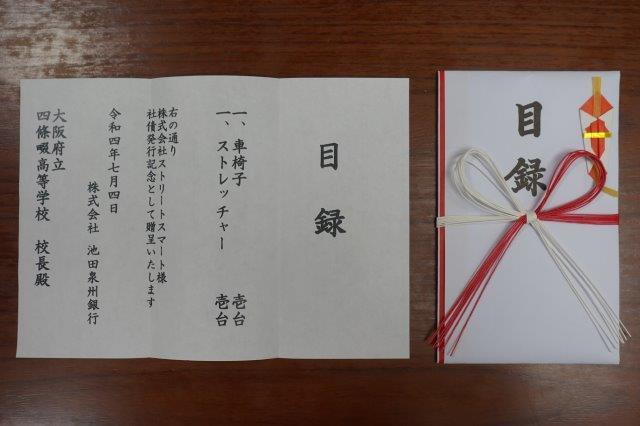 目録
一、車椅子 壱台
一、ストレッチャー 壱台
右の通り
株式会社ストリートスマート様
社債発行記念として贈呈いたします
令和四年七月四日
株式会社 池田泉州銀行
大阪府立
四條畷高等学校 校長殿
目録